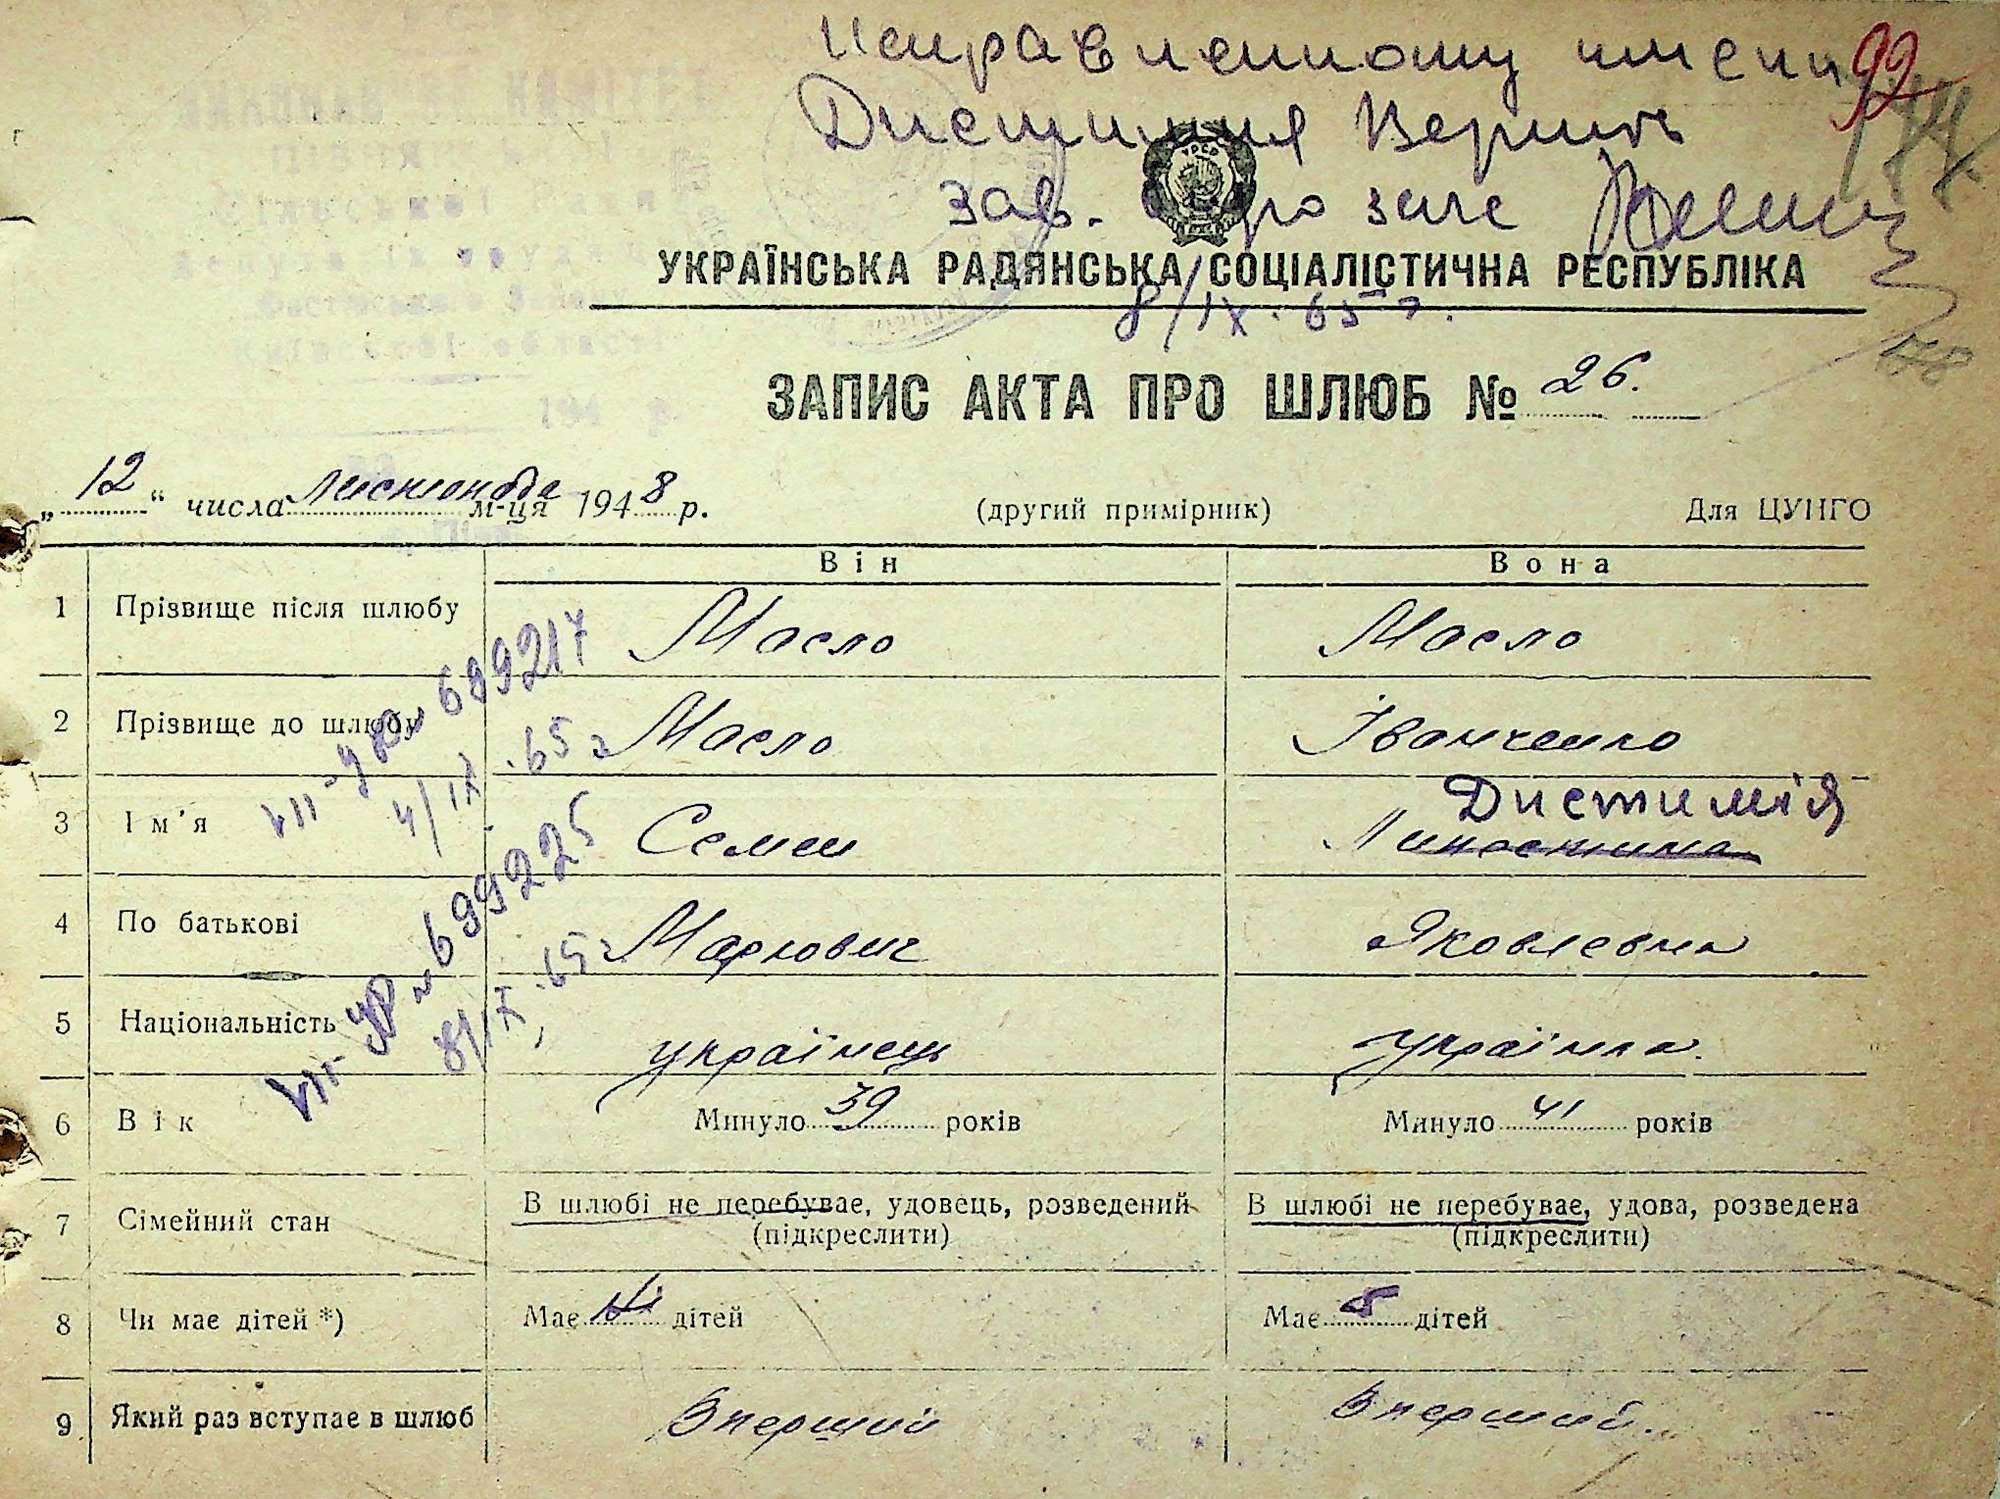 Исправленному имени
92
Дистимия Верить
174
Зав. бюро загс
УРСР
УКРАЇНСЬКА РАДЯНСЬКА СОЦІАЛІСТИЧНА РЕСПУБЛІКА
8/IX. 65 г.
178
ЗАПИС АКТА ПРО ШЛЮБ № 26.
„12“ числа листопада м-ця 1948 р. (другий примірник) Для ЦУНГО
Він Вона
1 Прізвище після шлюбу Масло Масло
2 Прізвище до шлюбу Масло Іванченко
VII-УР № 699217
4/IX.65 г
Дистимія
3 Ім'я Семен
4 По батькові Маркович Яковлевна
VII-УР № 699225
8/IX.65 г
5 Національність українець українка.
6 Вік Минуло 39 років Минуло 41 років
7 Сімейний стан В шлюбі не перебуває, удовець, розведений В шлюбі не перебуває, удова, розведена
(підкреслити) (підкреслити)
8 Чи має дітей *) Має дітей Має дітей
9 Який раз вступає в шлюб Вперший Вперший